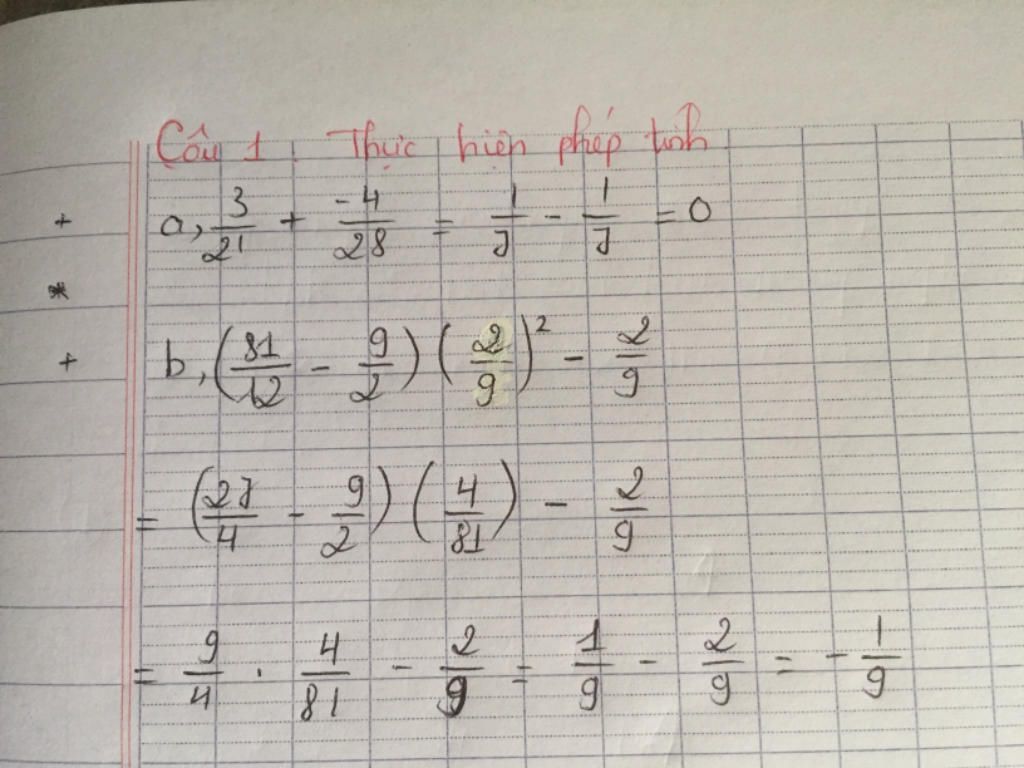 Câu 1. Thực hiện phép tính
+ a, 3/21 + -4/28 = 1/7 - 1/7 = 0
*
+ b, (81/12 - 9/2) (2/9)² - 2/9
= (27/4 - 9/2) (4/81) - 2/9
= 9/4 . 4/81 - 2/9 = 1/9 - 2/9 = - 1/9